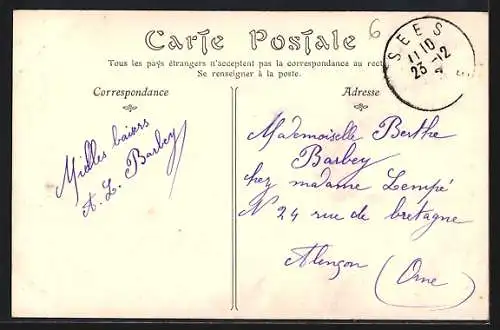 6
Carte Postale
Tous les pays étrangers n'acceptent pas la correspondance au recto
Se renseigner à la poste.
SEES
11 10
23 -12
Correspondance
Adresse
Mielles baisers
A. L. Barbey
Mademoiselle Berthe
Barbey
hez madame Lempé
N 24 rue de bretagne
Alençon
(Orne